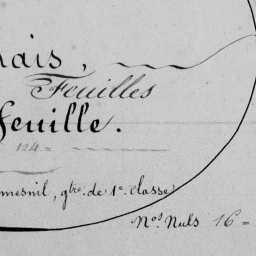 nais,
Feuilles
feuille.
124=
mesnil, gtre. de 1e. classe
Nos. Nuls 16=